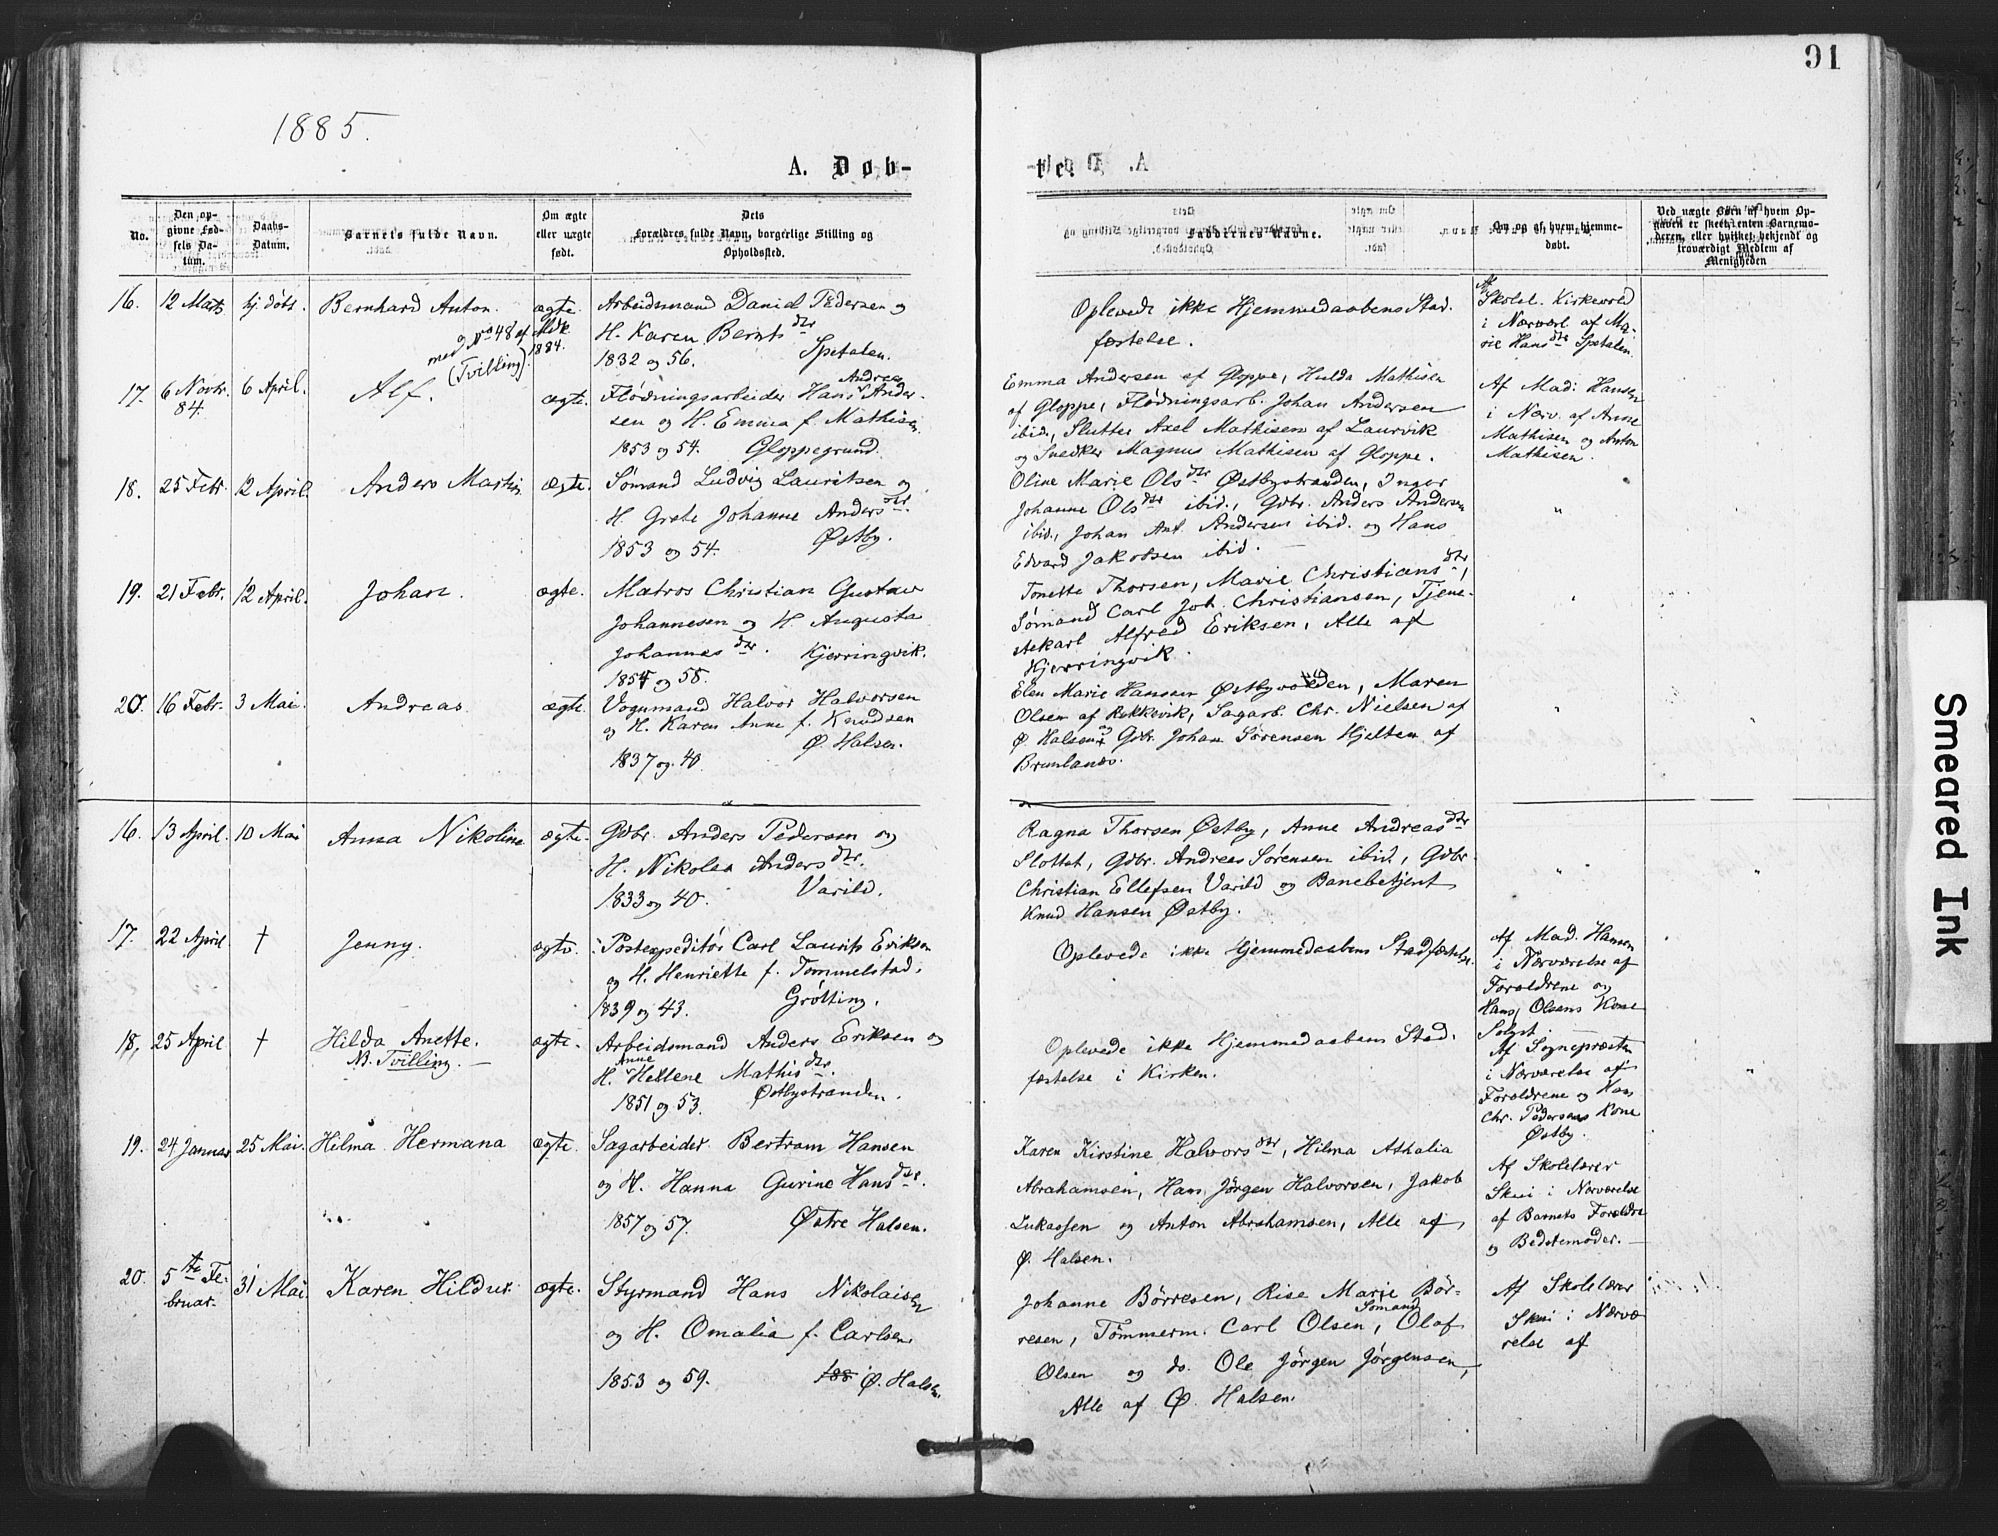 91
1885.
A. Døb-
te.
No.
Den op-
givne Fød-
sels Da-
tum.
Daabs-
Datum.
Barnets fulde Navn.
Om ægte
eller uægte
født.
Dets
Forældres fulde Navn, borgerlige Stilling og
Opholdssted.
Faddernes Navne.
Om og af hvem hjemme-
døbt.
Ved uægte Børn af hvem Op-
gaven er skeet: enten Barnemo-
deren, eller hvilket bekjendt og
troværdigt Medlem af
Menigheden
16. 12 Mats hj. døbt. Bernhard Anton. ægte.
med No 48 af Mdk
1884.
(Tvilling).
Arbeidsmand Daniel Pedersen og
H. Karen Bernts dtr
1832 og 56. Spetalen.
Oplevede ikke Hjemmedaabens Stad-
fæstelse.
Af
Skolel. Kirkevold
i Nærværl. af Ma-
rie Hans dtr Spetalen.
17. 6 Novbr. 84. 6 April. Alf. ægte.
Andreas
Flødningsarbeider Hans Ander-
sen og H. Emma f. Mathisen
1853 og 54. Gloppegrund.
Emma Andersen af Gloppe, Hulda Mathisen
af Gloppe, Flødningsarb. Johan Andersen
ibid., Slutter Axel Mathisen af Laurvik
og Snedker Magnus Mathisen af Gloppe.
Af Mad. Hansen
i Nærv. af Anne
Mathisen og Anton
Mathisen.
18. 25 Febr. 12 April. Anders Martin ægte.
Sømand Ludvig Lauritsen og
H. Grete Johanne Anders dtr.
1853 og 54. Østby.
Oline Marie Ols dtr Østbystranden, Inger
Johanne Ols dtr ibid., Gdbr. Anders Andersen
ibid., Johan Ant. Andersen ibid. og Hans
Edvard Jakobsen ibid.
"
19. 21 Febr. 12 April. Johan. ægte.
Matros Christian Gustav
Johannesen og H. Augusta
Johannes dtr. Kjerringvik.
1854 og 58.
Tonette Thorsen, Marie Christians dtr,
Sømand Carl Joh. Christiansen, Tjene-
stekarl Alfred Eriksen, Alle af
Kjerringvik.
"
20. 16 Febr. 3 Mai. Andreas. ægte.
Vognmand Halvor Halvorsen
og H. Karen Anne f. Knudsen
1837 og 40. Ø. Halsen.
Elen Marie Hansen Østbyvolden, Maren
Olsen af Rekkevik, Sagarb. Chr. Nielsen af
Ø. Halsen og Gdbr. Johan Sørensen Hjelten af
Brunlanæs.
"
16. 13 April. 10 Mai Anna Nikoline ægte.
Gdbr. Anders Pedersen og
H. Nikolea Anders dtr.
1833 og 40. Varild.
Ragna Thorsen Østby, Anne Andreas dtr
Slottet, Gdbr. Andreas Sørensen ibid., Gdbr.
Christian Ellefsen Varild og Banebetjent
Knud Hansen Østby.
" "
17. 22 April † Jenny. ægte.
Postexpeditør Carl Laurits Eriksen
og H. Henriette f. Tommelstad.
1839 og 43. Grøtting.
Oplevede ikke Hjemmedaabens Stadfæstelse.
Af Mad. Hansen
i Nærværelse af
Forældrene og
Hans Olsens Kone
18. 25 April † Hilda Anette. ægte.
NB. Tvilling.
Arbeidsmand Anders Eriksen og
Anne
H. Hellene Mathis dtr.
1851 og 53. Østbystranden.
Oplevede ikke Hjemmedaabens Stad-
fæstelse i Kirken.
Af Sognepræsten
i Nærværelse af
Forældrene og Hans
Chr. Pedersens Kone
Østby.
"
19. 24 Januar 25 Mai. Hilma Hermana ægte.
Sagarbeider Bertram Hansen
og H. Hanna Gurine Hans dtr.
1857 og 57. Østre Halsen.
Karen Kirstine Halvors dtr, Hilma Athalia
Abrahamsen, Hans Jørgen Halvorsen, Jakob
Lukassen og Anton Abrahamsen, Alle af
Ø. Halsen.
Af Skolelærer
Skui i Nærværelse
af Barnets Forældre
og Bedstemoder.
20. 5te Fe-
bruar. 31 Mai. Karen Hildur. ægte.
Styrmand Hans Nikolaisen
og H. Omalia f. Carlsen.
1853 og 59. 188 Ø. Halsen.
Johanne Børresen, Rise Marie Bør-
resen, Tømmerm. Carl Olsen, Sømand Olaf
Olsen og do. Ole Jørgen Jørgensen,
Alle af Ø. Halsen.
Af Skolelærer
Skui i Nærvæ
relse af
Smeared Ink